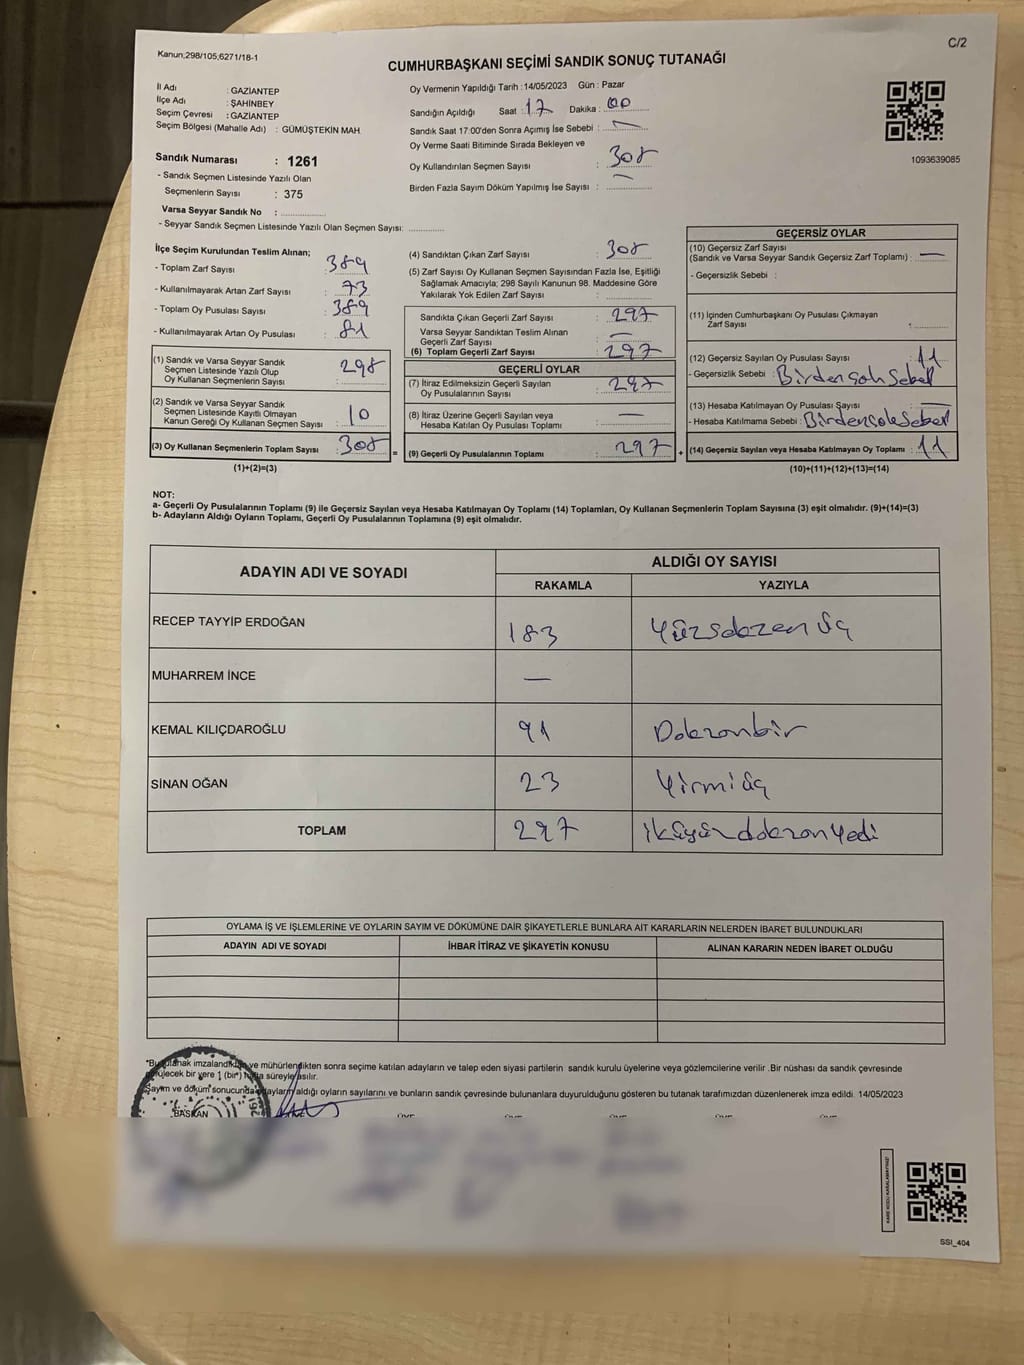 Kanun;298/105;6271/18-1
C/2
CUMHURBAŞKANI SEÇİMİ SANDIK SONUÇ TUTANAĞI
İl Adı : GAZİANTEP
İlçe Adı : ŞAHİNBEY
Seçim Çevresi : GAZİANTEP
Seçim Bölgesi (Mahalle Adı) : GÜMÜŞTEKİN MAH.
Sandık Numarası : 1261
- Sandık Seçmen Listesinde Yazılı Olan
Seçmenlerin Sayısı : 375
Varsa Seyyar Sandık No :
- Seyyar Sandık Seçmen Listesinde Yazılı Olan Seçmen Sayısı:
Oy Vermenin Yapıldığı Tarih : 14/05/2023 Gün : Pazar
Sandığın Açıldığı Saat : 17 Dakika : 00
Sandık Saat 17:00'den Sonra Açımış İse Sebebi : —
Oy Verme Saati Bitiminde Sırada Bekleyen ve
Oy Kullandırılan Seçmen Sayısı : 308
Birden Fazla Sayım Döküm Yapılmış İse Sayısı : —
1093639085
İlçe Seçim Kurulundan Teslim Alınan;
- Toplam Zarf Sayısı : 389
- Kullanılmayarak Artan Zarf Sayısı : 73
- Toplam Oy Pusulası Sayısı : 389
- Kullanılmayarak Artan Oy Pusulası : 81
(1) Sandık ve Varsa Seyyar Sandık
Seçmen Listesinde Yazılı Olup
Oy Kullanan Seçmenlerin Sayısı : 298
(2) Sandık ve Varsa Seyyar Sandık
Seçmen Listesinde Kayıtlı Olmayan
Kanun Gereği Oy Kullanan Seçmen Sayısı : 10
(3) Oy Kullanan Seçmenlerin Toplam Sayısı : 308
(1)+(2)=(3)
(4) Sandıktan Çıkan Zarf Sayısı : 308
(5) Zarf Sayısı Oy Kullanan Seçmen Sayısından Fazla İse, Eşitliği
Sağlamak Amacıyla; 298 Sayılı Kanunun 98. Maddesine Göre
Yakılarak Yok Edilen Zarf Sayısı :
Sandıkta Çıkan Geçerli Zarf Sayısı : 297
Varsa Seyyar Sandıktan Teslim Alınan
Geçerli Zarf Sayısı : —
(6) Toplam Geçerli Zarf Sayısı : 297
GEÇERLİ OYLAR
(7) İtiraz Edilmeksizin Geçerli Sayılan
Oy Pusulalarının Sayısı : 297
(8) İtiraz Üzerine Geçerli Sayılan veya
Hesaba Katılan Oy Pusulası Toplamı : —
= (9) Geçerli Oy Pusulalarının Toplamı : 297 +
GEÇERSİZ OYLAR
(10) Geçersiz Zarf Sayısı
(Sandık ve Varsa Seyyar Sandık Geçersiz Zarf Toplamı) : —
- Geçersizlik Sebebi :
(11) İçinden Cumhurbaşkanı Oy Pusulası Çıkmayan
Zarf Sayısı :
(12) Geçersiz Sayılan Oy Pusulası Sayısı : 11
- Geçersizlik Sebebi : Birden çok Sebel
(13) Hesaba Katılmayan Oy Pusulası Sayısı : —
- Hesaba Katılmama Sebebi : Birden çok Sebel
(14) Geçersiz Sayılan veya Hesaba Katılmayan Oy Toplamı : 11
(10)+(11)+(12)+(13)=(14)
NOT:
a- Geçerli Oy Pusulalarının Toplamı (9) ile Geçersiz Sayılan veya Hesaba Katılmayan Oy Toplamı (14) Toplamları, Oy Kullanan Seçmenlerin Toplam Sayısına (3) eşit olmalıdır. (9)+(14)=(3)
b- Adayların Aldığı Oyların Toplamı, Geçerli Oy Pusulalarının Toplamına (9) eşit olmalıdır.
ADAYIN ADI VE SOYADI
ALDIĞI OY SAYISI
RAKAMLA YAZIYLA
RECEP TAYYİP ERDOĞAN 183 Yüzseksen üç
MUHARREM İNCE —
KEMAL KILIÇDAROĞLU 91 Doksanbir
SİNAN OĞAN 23 Yirmi üç
TOPLAM 297 ikiyüz doksan yedi
OYLAMA İŞ VE İŞLEMLERİNE VE OYLARIN SAYIM VE DÖKÜMÜNE DAİR ŞİKAYETLERLE BUNLARA AİT KARARLARIN NELERDEN İBARET BULUNDUKLARI
ADAYIN ADI VE SOYADI İHBAR İTİRAZ VE ŞİKAYETİN KONUSU ALINAN KARARIN NEDEN İBARET OLDUĞU
ve mühürlendikten sonra seçime katılan adayların ve talep eden siyasi partilerin sandık kurulu üyelerine veya gözlemcilerine verilir .Bir nüshası da sandık çevresinde
bir yere 1 (bir) hafta süreyle asılır.
Sayım ve döküm sonucunda adayların aldığı oyların sayılarını ve bunların sandık çevresinde bulunanlara duyurulduğunu gösteren bu tutanak tarafımızdan düzenlenerek imza edildi. 14/05/2023
BAŞKAN
SSI_404